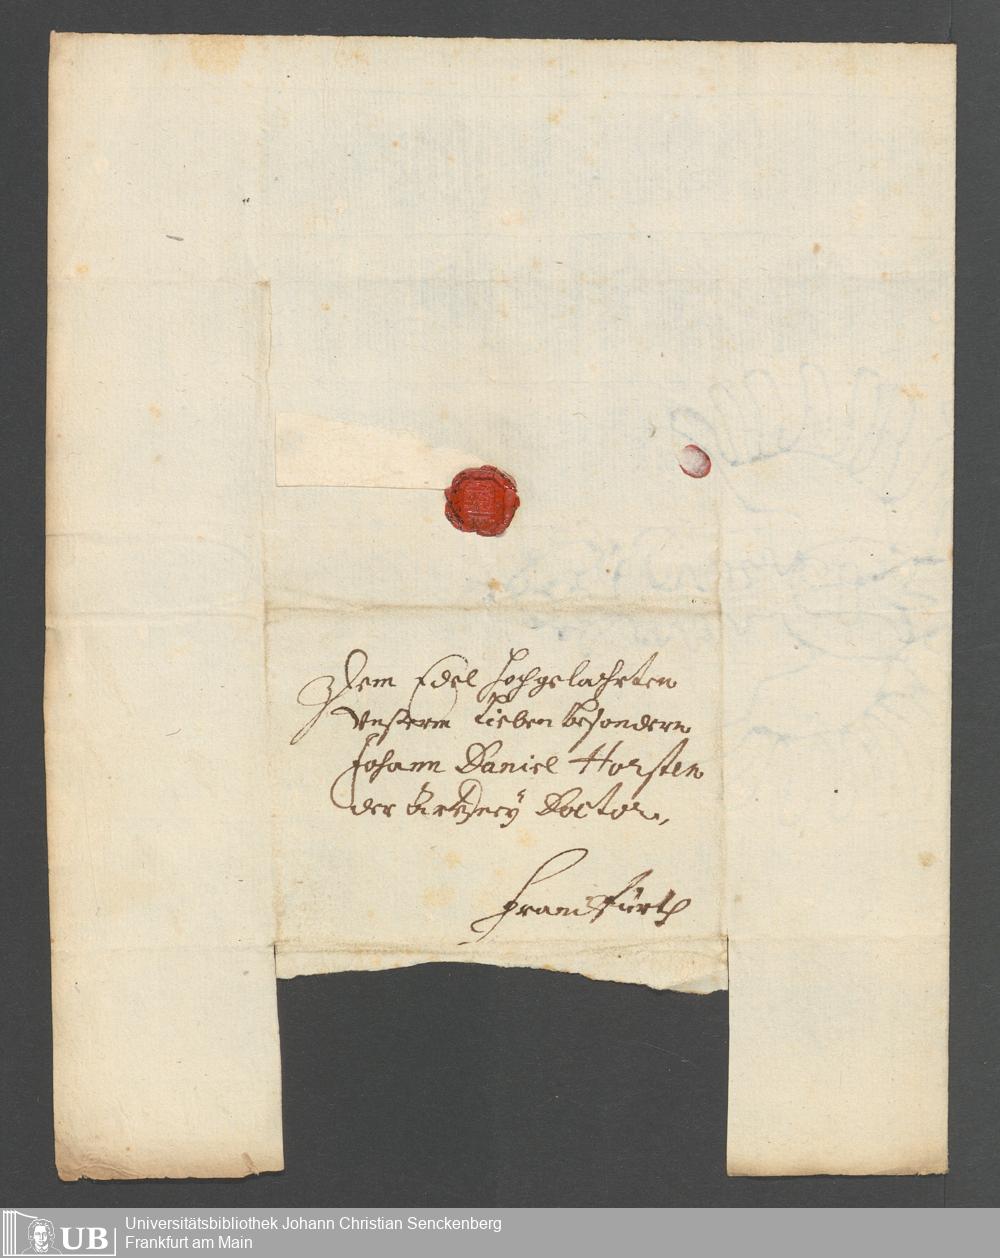 Dem Edel Hochgelahrten
Unßerm Lieben besondern
Johann Daniel Horsten
der Artzney Doctor,
Franckfurth
UB
Universitätsbibliothek Johann Christian Senckenberg
Frankfurt am Main